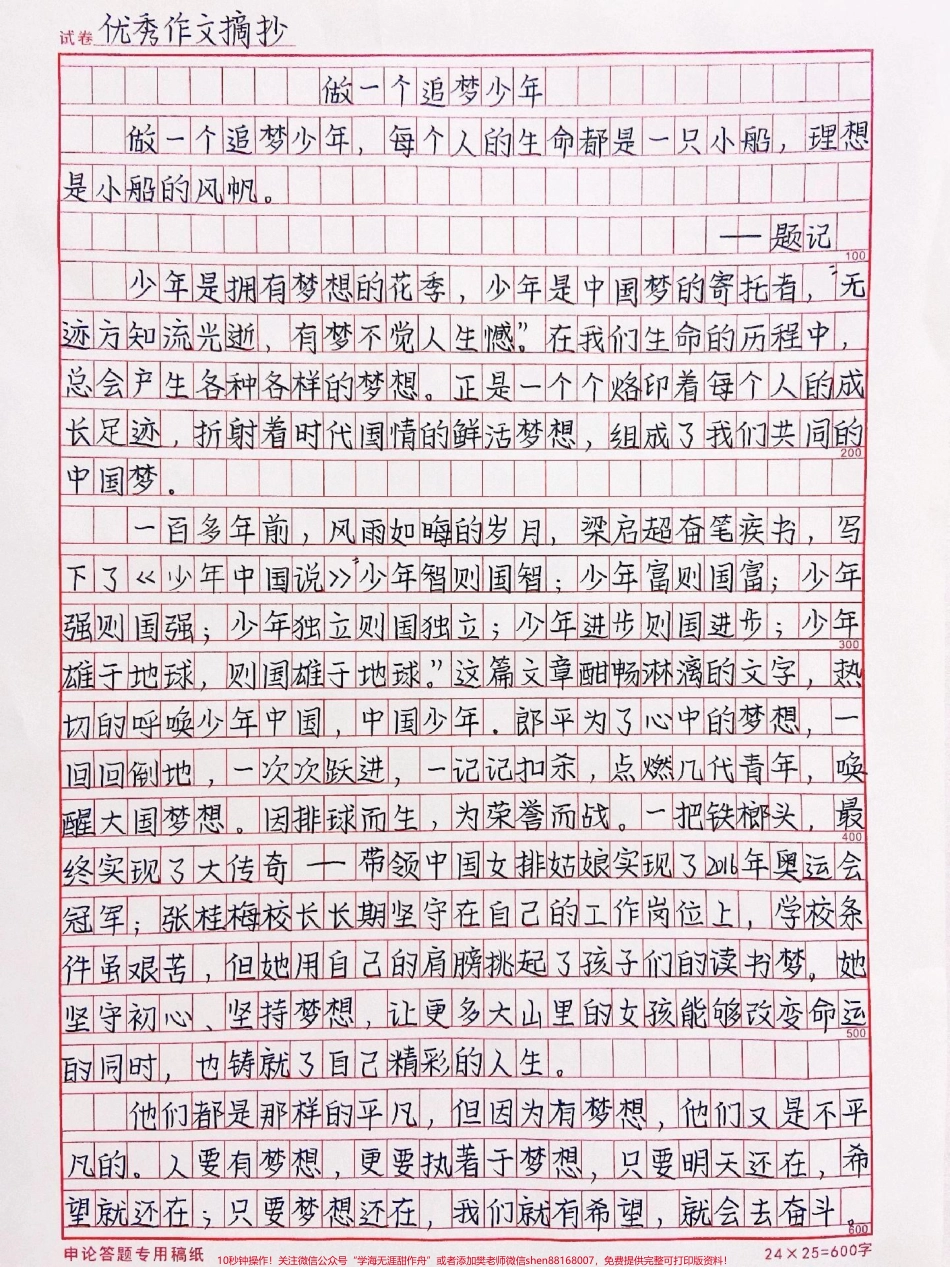 试卷 优秀作文摘抄
做一个追梦少年
做一个追梦少年，每个人的生命都是一只小船，理想
是小船的风帆。
——题记
100
少年是拥有梦想的花季，少年是中国梦的寄托者，“无
迹方知流光逝，有梦不觉人生憾”。在我们生命的历程中，
总会产生各种各样的梦想。正是一个个烙印着每个人的成
长足迹，折射着时代国情的鲜活梦想，组成了我们共同的
200
中国梦。
一百多年前，风雨如晦的岁月，梁启超奋笔疾书，写
下了《少年中国说》“少年智则国智；少年富则国富；少年
强则国强；少年独立则国独立；少年进步则国进步；少年
300
雄于地球，则国雄于地球。”这篇文章酣畅淋漓的文字，热
切的呼唤少年中国，中国少年.郎平为了心中的梦想，一
回回倒地，一次次跃进，一记记扣杀，点燃几代青年，唤
醒大国梦想。因排球而生，为荣誉而战。一把铁榔头，最
400
终实现了大传奇——带领中国女排姑娘实现了2016年奥运会
冠军；张桂梅校长长期坚守在自己的工作岗位上，学校条
件虽艰苦，但她用自己的肩膀挑起了孩子们的读书梦。她
坚守初心、坚持梦想，让更多大山里的女孩能够改变命运
500
的同时，也铸就了自己精彩的人生。
他们都是那样的平凡，但因为有梦想，他们又是不平
凡的。人要有梦想，更要执著于梦想，只要明天还在，希
望就还在；只要梦想还在，我们就有希望，就会去奋斗。
600
申论答题专用稿纸 24×25=600字
10秒钟操作！关注微信公众号“学海无涯甜作舟”或者添加樊老师微信shen88168007，免费提供完整可打印版资料！